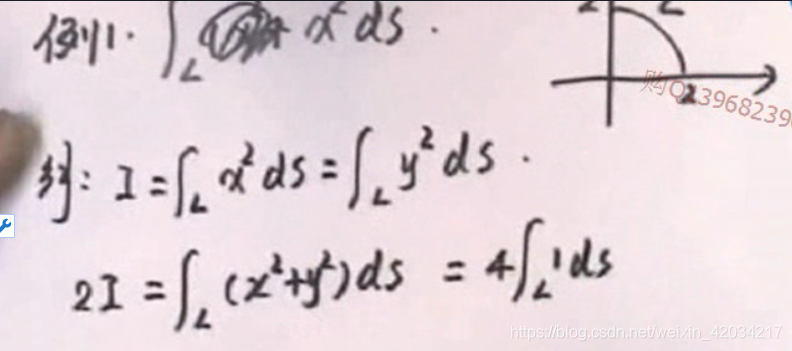 例1. ∫_L x² ds.
2 L
2
购Q 239682390
解: I = ∫_L x² ds = ∫_L y² ds.
2I = ∫_L (x²+y²) ds = 4∫_L 1 ds
https://blog.csdn.net/weixin_42034217